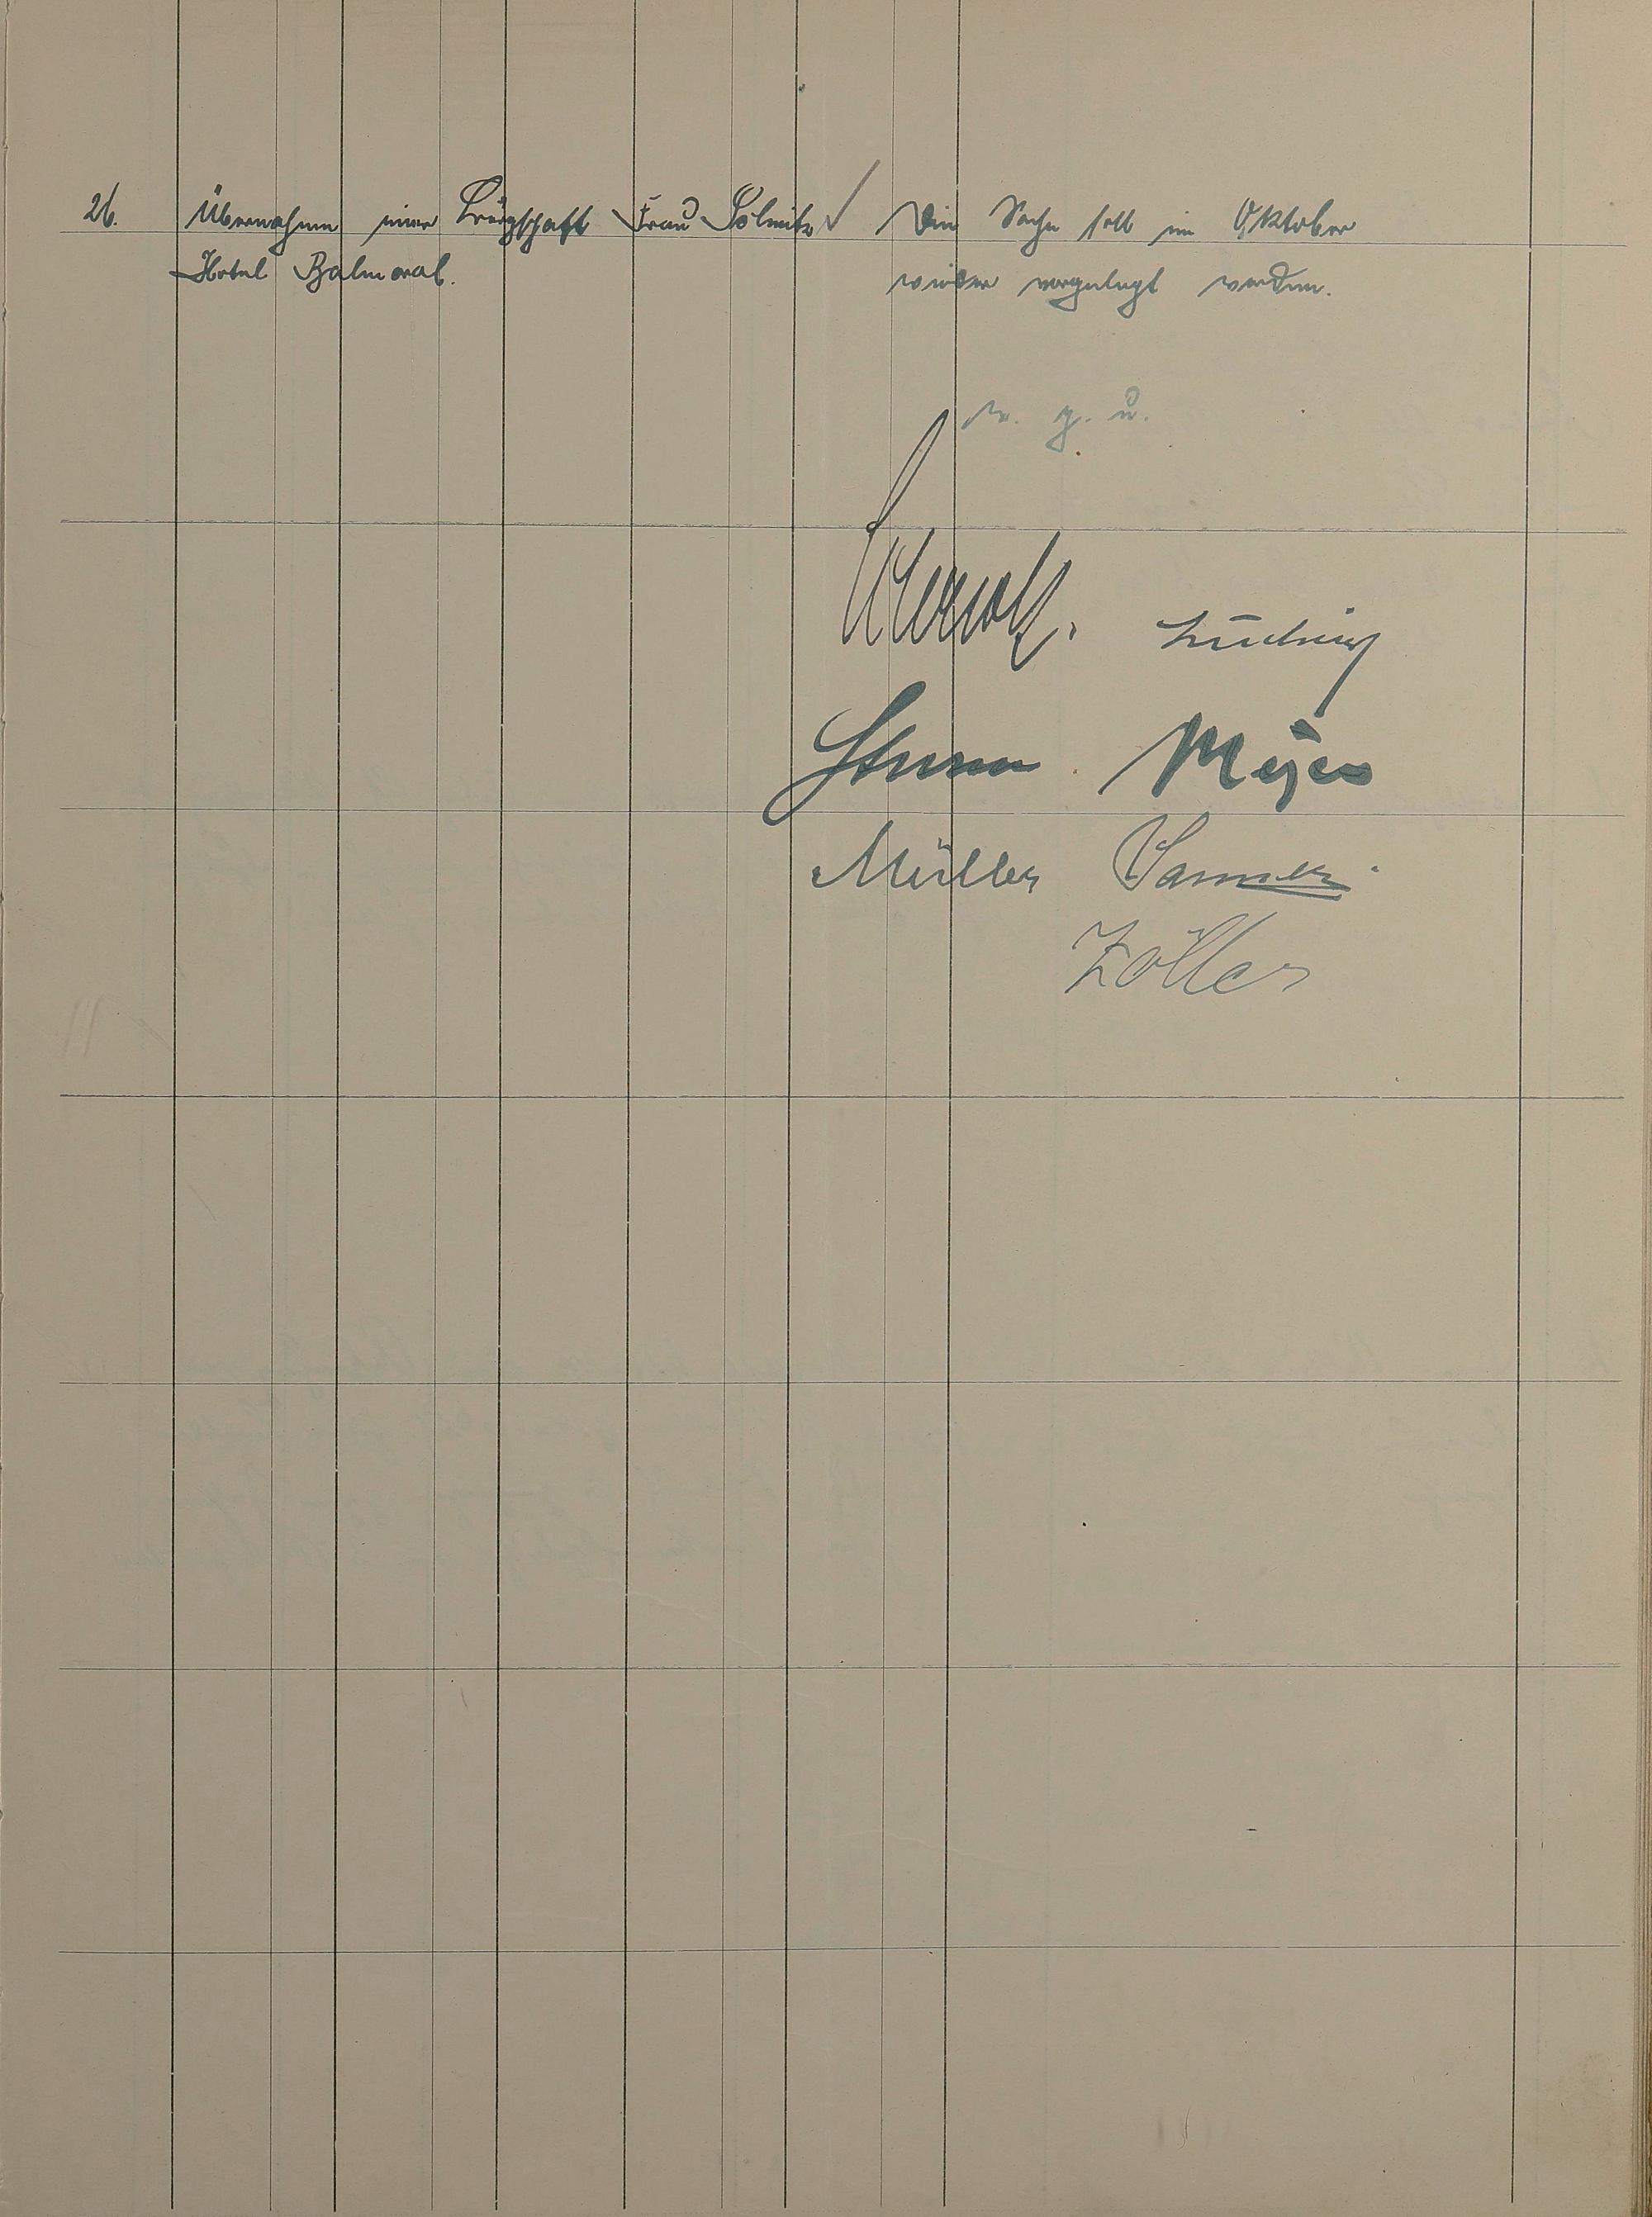 26. Übernahme einer Bürgschaft Frau Sölmitz
Hotel Balmoral.
Die Sache soll im Oktober
wieder vorgelegt werden.
v. g. u.
Ludwig
Sturm Meyer
Müller Sanner
Zöller